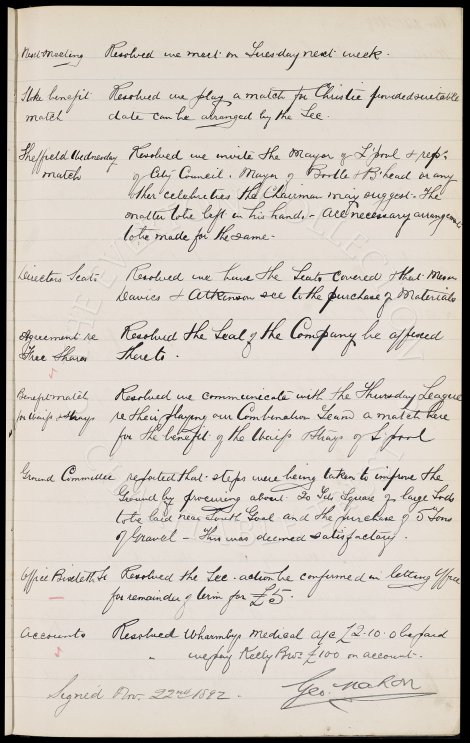 Next meeting Resolved we meet on Tuesday next week.
Stoke benefit Resolved we play a match for Christie provided suitable
match date can be arranged by the Sec.
Sheffield Wednesday Resolved we invite the Mayor of L'pool & reps.
match of City Council. Mayor of Bootle & B'head or any
other celebreties the Chairman may suggest. The
matter to be left in his hands - all necessary arrangements
to be made for the same.
Directors Seats Resolved we have the Seats covered & that Messrs
Davies & Atkinson see to the purchase of Materials
Agreement re Resolved the Seal of the Company be affixed
Free Shares thereto.
Benefit match Resolved we communicate with the Thursday League
for Waifs & Strays re their playing our Combination Team a match here
for the benefit of the Waifs & Strays of L'pool
Ground Committee reported that steps were being taken to improve the
Ground by procuring about 20 Yds Square of large Sods
to be laid near South Goal and the purchase of 5 Tons
of Gravel - This was deemed satisfactory.
Office Bixteth St Resolved the Sec. action be confirmed in letting Office
for remainder of term for £5.
Accounts Resolved Wharmbys Medical a/c £2.10.0 be paid
" we pay Kelly Bros £100 on account.
Signed Nov. 22nd 1892. Geo. Mahon